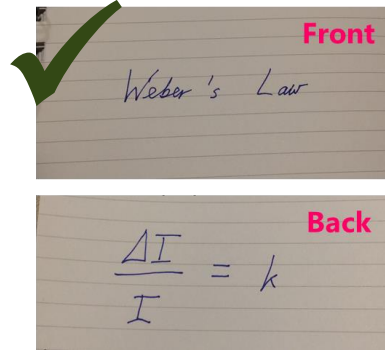 Front
Weber's Law
Back
ΔI
I
= k